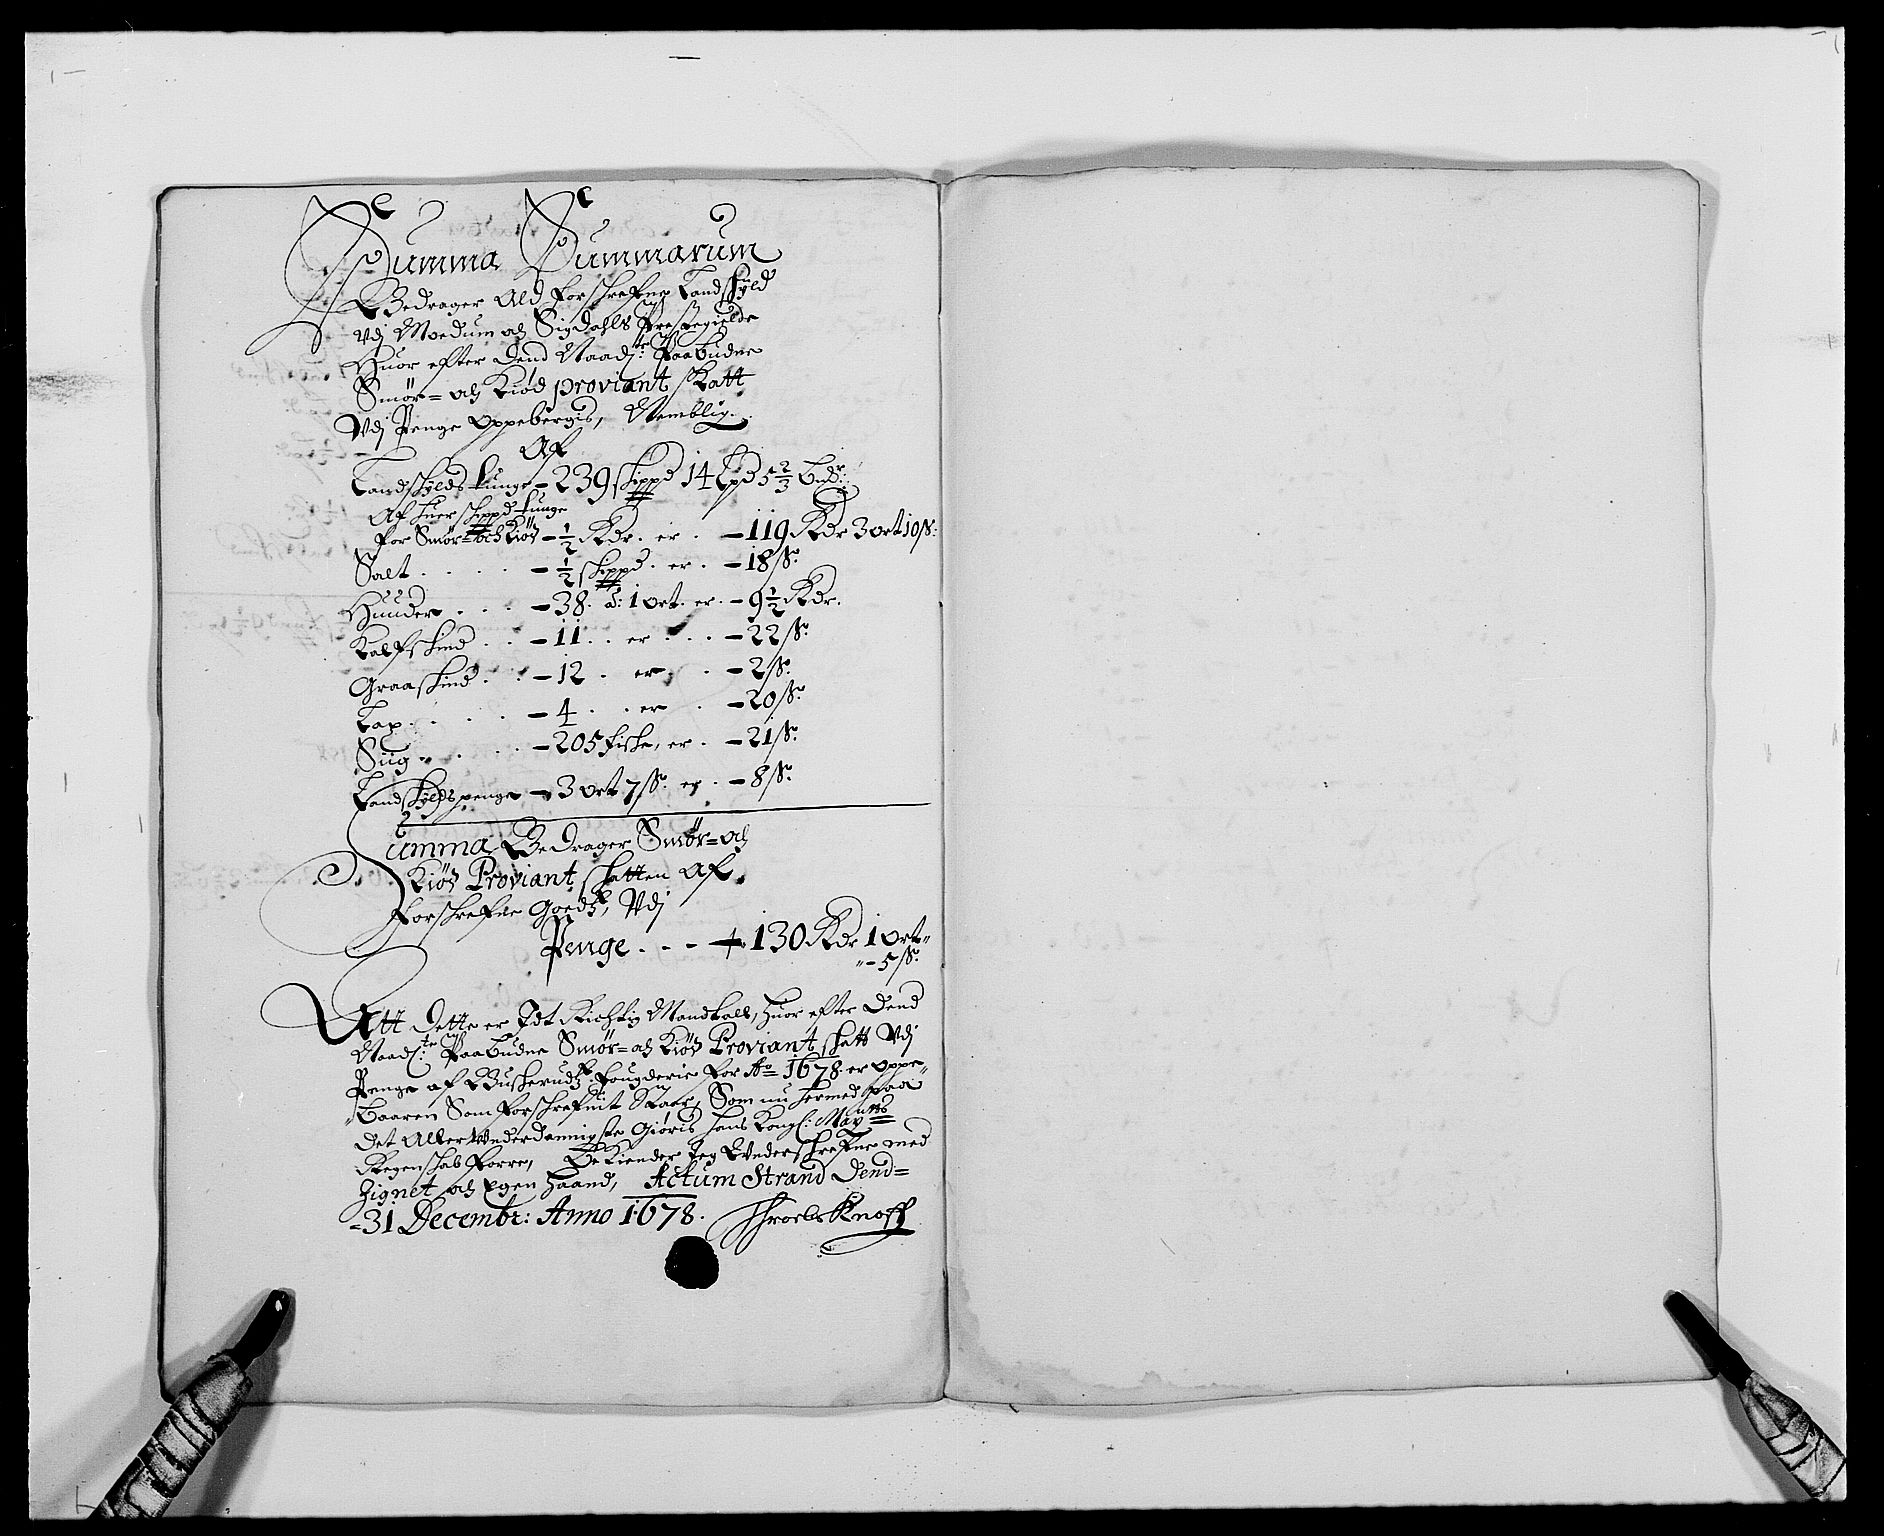 Summa Summarum
Bedrager Ald forschrefne Landschyld
Vdj Modum och Sigdahls Prestegielde
Huor efter dend Naadj:te Paabudne
Smör= och Kiöd proviant skatt
Vdj Penge Oppebergis, Nemblig.
Af
Landschylds tunge - 239 schippd 14 Lpd 5 2/3 bmr:
Af huer schippd tunge
for Smör= och Kiöd - 1/2 Rdr. er . - 119 Rdr 3 ort 10 ß:
Salt . . . . - 1/2 schippd. er . - 18 ß.
Huuder . . . - 38. a: 1 ort. er . - 9 1/2 Rdr.
Kalfskind . . - 11 . . er . . . - 22 ß.
Graaskind . . - 12 . er . . - 2 ß.
Lax . . . . - 4 . . er . - 20 ß.
Siig . . . . - 205 fiske, er . - 21 ß.
Landschylds penge - 3 ort 7 ß. er . - 8 ß.
Summa Bedrager Smör= och
Kiöd Proviant schatten Af
forschrefne Goedtz, Vdj
Penge . . - 130 Rdr 1 ort
- 5 ß.
Att dette er Idt Richtig Mandtall, huor efter dend
Naad:te Paabudne Smör= och Kiöd Proviant schatt Vdj
Penge af Buskerudtz fougderie for Ao 1678. er oppe=
baaren Som forschrefuit Staar, Som nu hermed paa
det Allerunderdannigste Giöris hans Kongl: Mayts
Regenschab forre, Bekiender Jeg Underschrefne med
Zignet och Egen haand, Actum Strand Dend=
=31 Decembr: Anno 1678. Throels Knoff